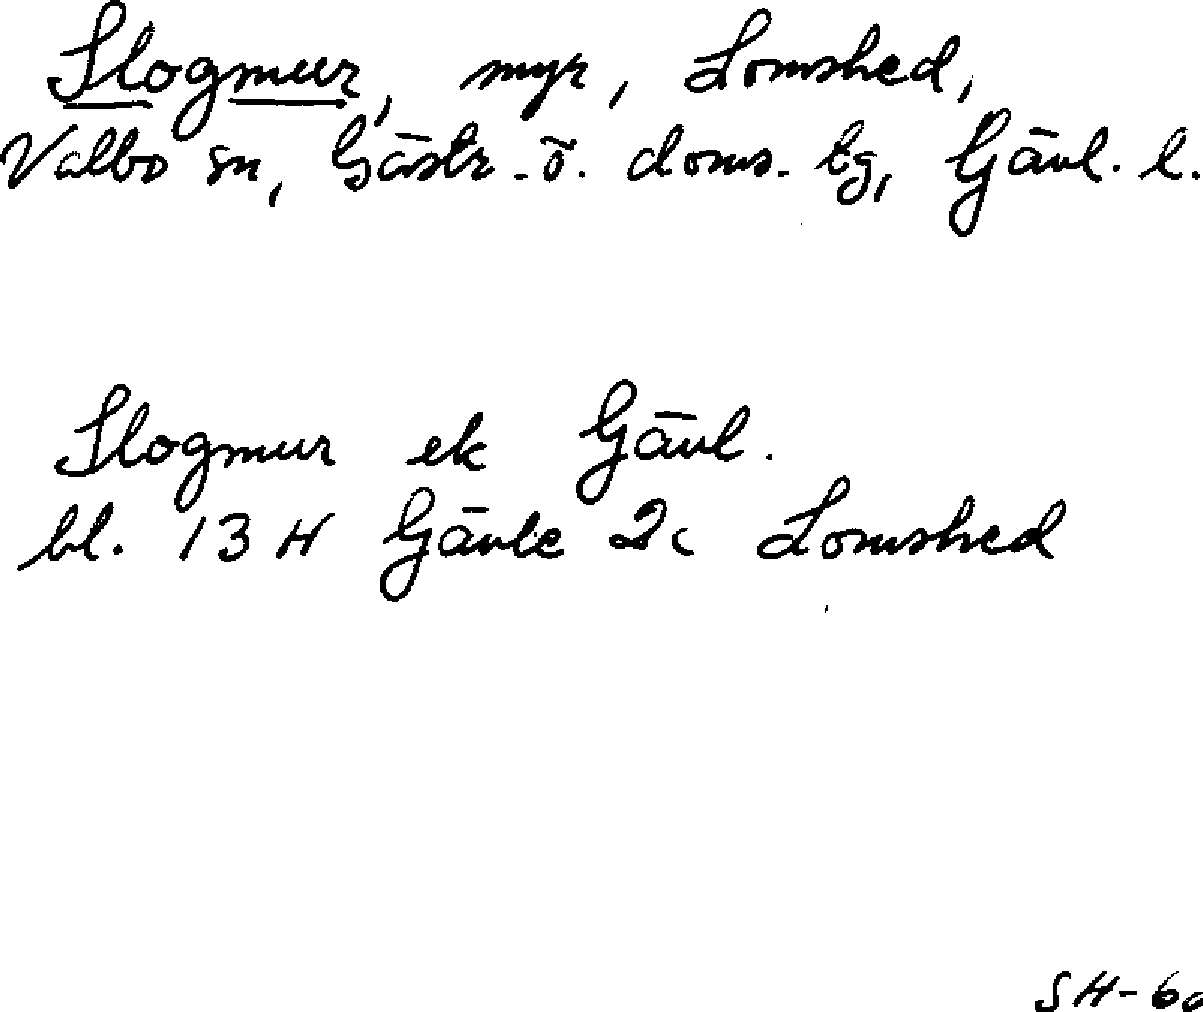 Slogmur, myr, Lomshed,
Valbo sn, Gästr.-ö. doms. tg, Gävl. l.
Slogmur ek Gävl.
bl. 13 H Gävle 2c Lomshed
SH-